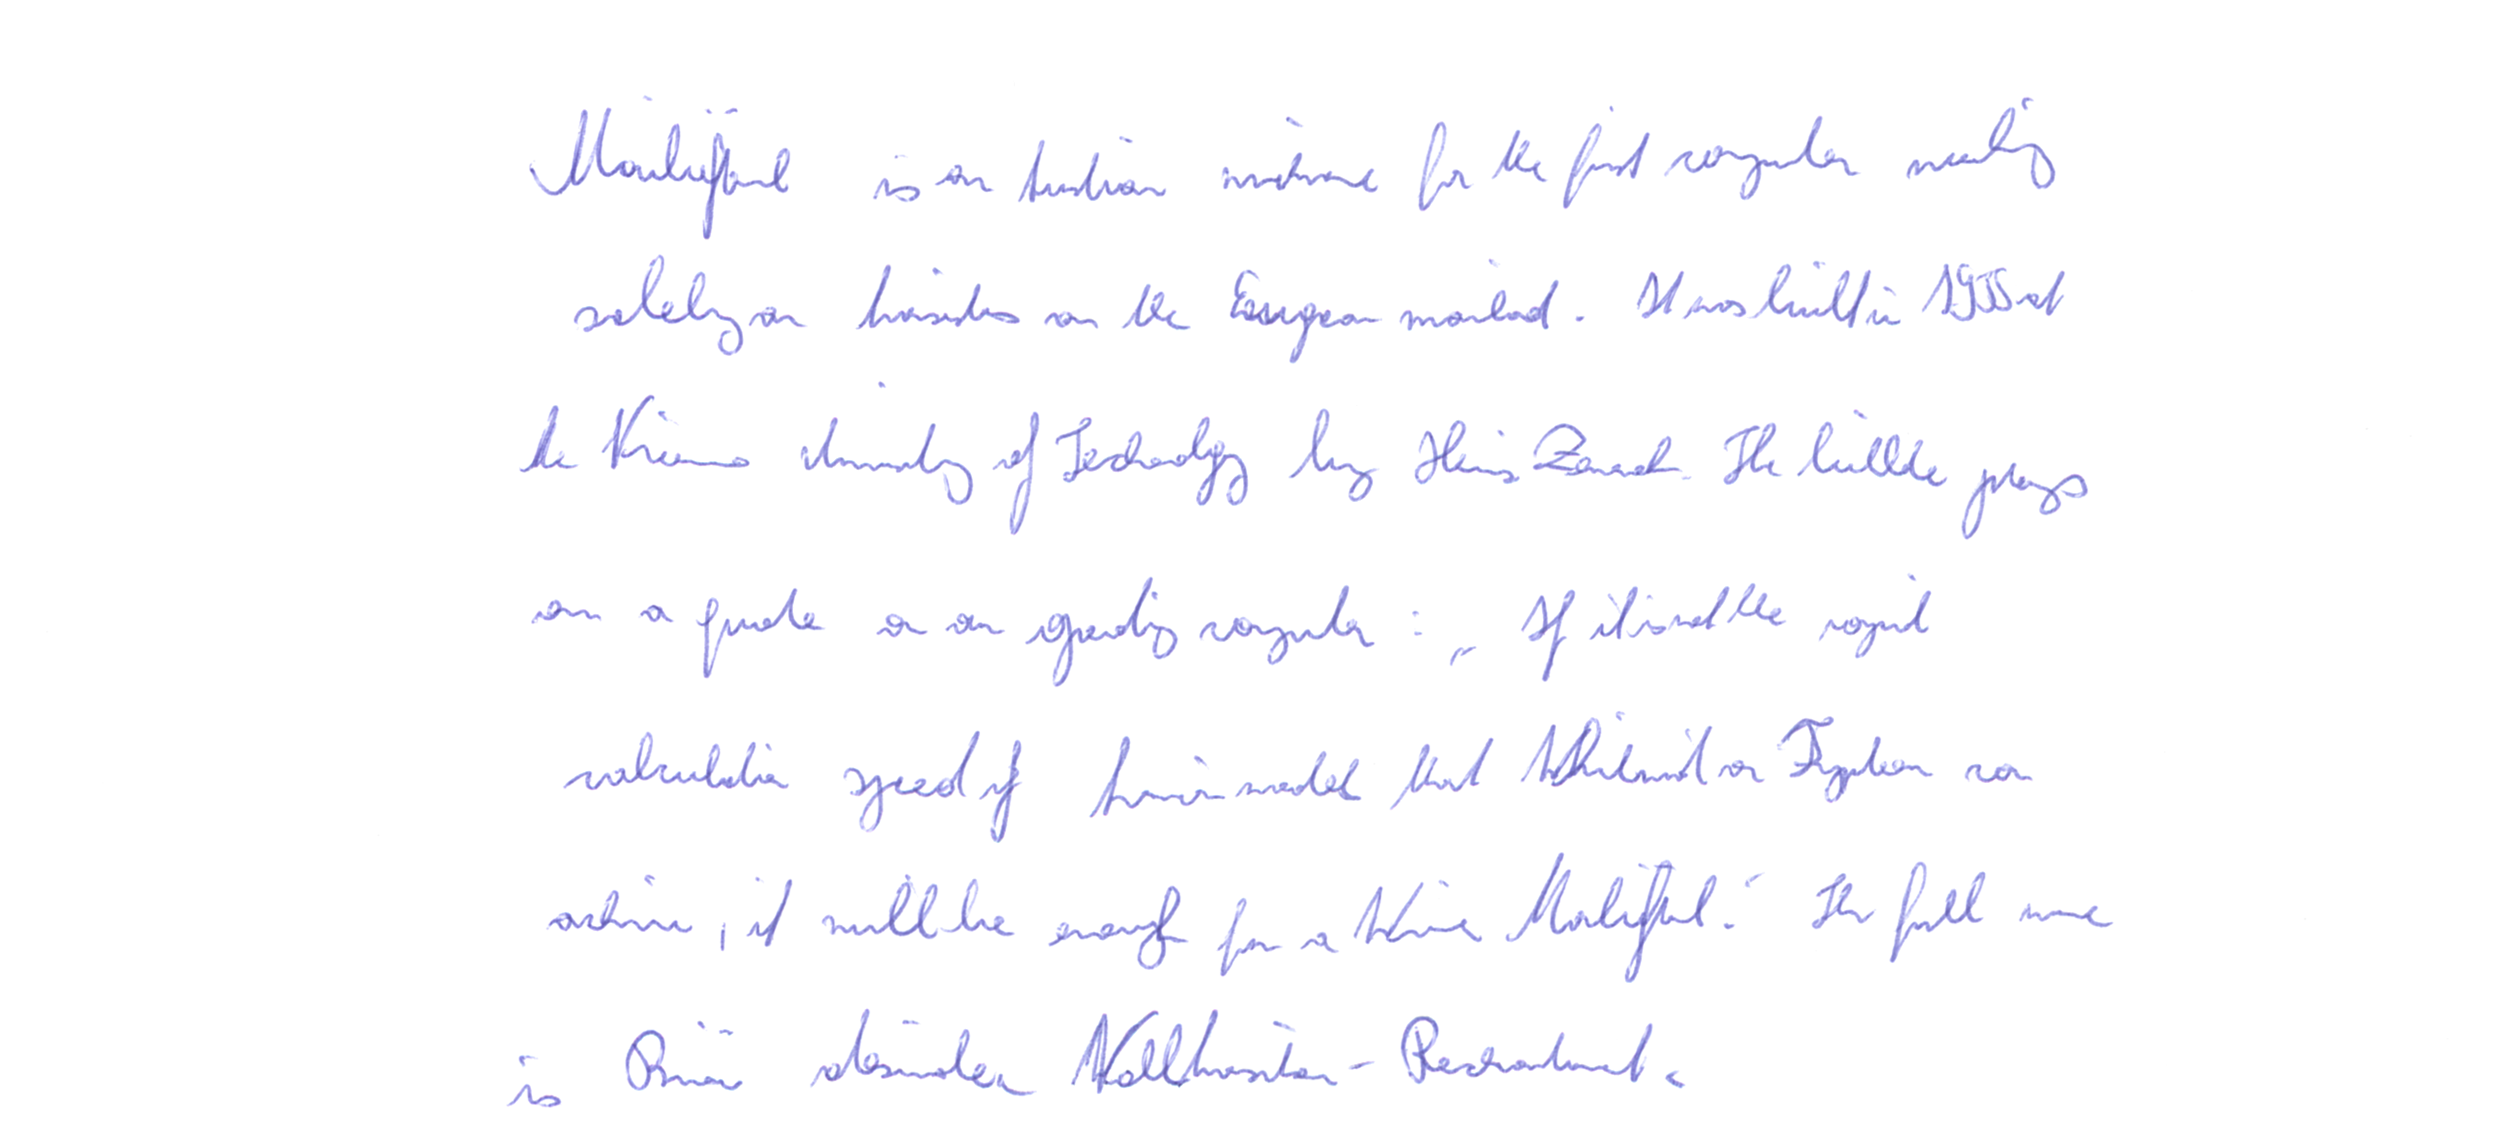 Mailüfterl is an Austrian nickname for the first computer working
solely on transistors on the European mainland. It was built in 1955 at
the Vienna University of Technology by Heinz Zemanek. The builder plays
on a quote on an operating computer: „If it is not the rapid
calculation speed of American models that Whirlwind or Typhoon can
achieve, it will be enough for a Wiener Mailüfterl.“ The full name
is Binär dezimaler Volltransistor-Rechenautomat.